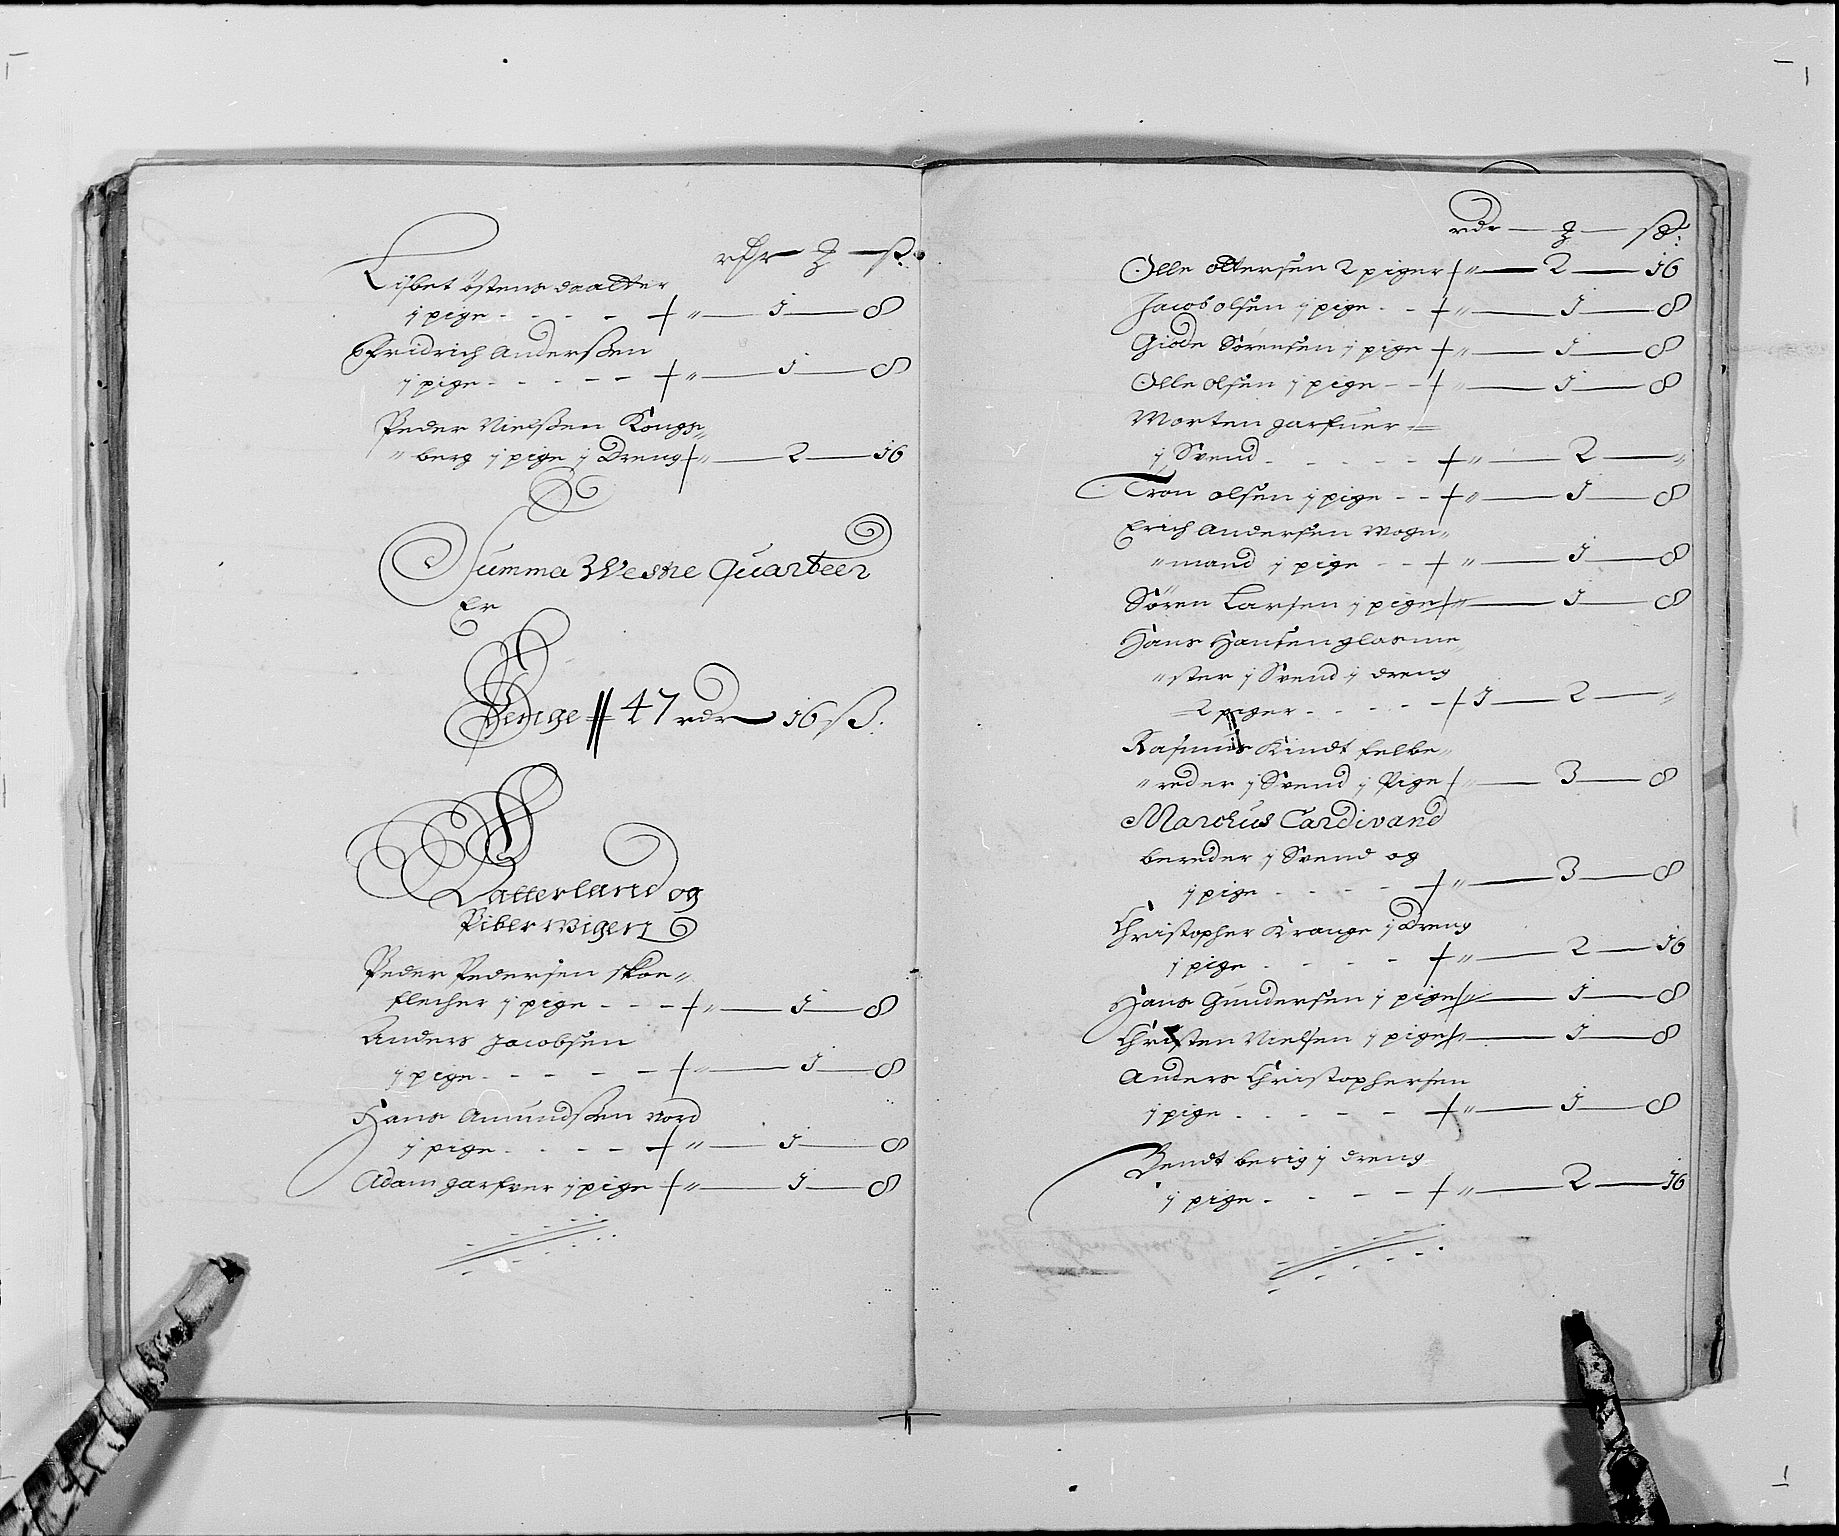 rdr — ʒ — ß.
Lisbet östens daatter
j pige - - - - + " — 1 — 8
Fridrich Anderssen
j pige - - - - - + " — 1 — 8
Peder Nielssen Kongs„
„berg j pige j Dreng + " — 2 — 16
Summa Westre Quarteer
Er
Penge # 47 rdr 16 ß.
Vatterland og
Piberwigen
Peder Pedersen skoe„
flecher j pige - - - + " — 1 — 8
Anders Jacobsen
j pige - - - - - + " — 1 — 8
Hans Amundssen nord
j pige - - - - + " — 1 — 8
Adam garfver j pige + " — 1 — 8
rdr — ʒ — ß:
Olle ottersen 2 piger + " — 2 — 16
Jacob olsen j pige - - + " — 1 — 8
Giöde Sörensen j pige + " — 1 — 8
Olle olsen j pige - - + " — 1 — 8
Morten garfuer =
j Svend - - - - - + " — 2 — "
Tron olsen j pige - - + " — 1 — 8
Erich Andersen Wogn„
„mand j pige - - + " — 1 — 8
Sören Larsen j pige + " — 1 — 8
Hans Hansen glasme„
„ster j Svend j dreng
2 piger - - - - - + 1 — 2 — "
Rasmus Kindt felbe„
„reder j Svend j Pige + " — 3 — 8
Marchus Cardivand
bereder j Svend og
j pige - - - - + " — 3 — 8
Christopher Krange j Dreng
j pige - - - - + " — 2 — 16
Hans Gundersen j pige + " — 1 — 8
Christen Nielsen j pige + " — 1 — 8
Anders Christophersen
j pige - - - - - + " — 1 — 8
Bendt berig j dreng
j pige - - - - + " — 2 — 16